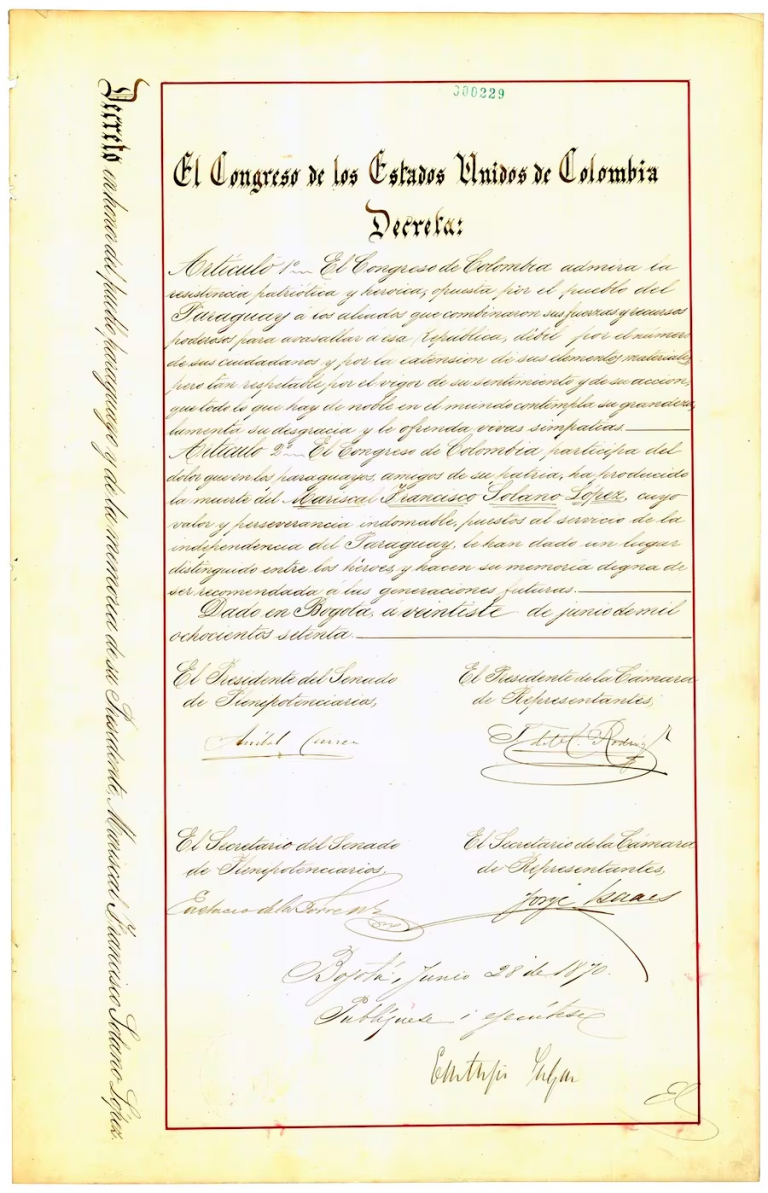 000229
El Congreso de los Estados Unidos de Colombia
Decreta:
Artículo 1º El Congreso de Colombia admira la
resistencia patriótica y heroica, opuesta por el pueblo del
Paraguay a los aliados que combinaron sus fuerzas y recursos
poderosos para avasallar á esa República, débil por el número
de sus ciudadanos y por la extension de sus elementos materiales,
pero tan respetable por el vigor de su sentimiento y de su accion,
que todo lo que hay de noble en el mundo contempla su grandeza,
lamenta su desgracia y le ofrenda vivas simpatías.
Artículo 2º El Congreso de Colombia participa del
dolor que en los paraguayos, amigos de su patria, ha producido
la muerte del Mariscal Francisco Solano López, cuyo
valor y perseverancia indomable, puestos al servicio de la
independencia del Paraguay, le han dado un lugar
distinguido entre los héroes, y hacen su memoria digna de
ser recomendada á las generaciones futuras.
Dado en Bogotá, á veintisiete de junio de mil
ochocientos setenta.
El Presidente del Senado
de Plenipotenciarios,
El Presidente de la Cámara
de Representantes,
Aníbal
El Secretario del Senado
de Plenipotenciarios,
El Secretario de la Cámara
de Representantes,
Eustacio de la Torre N.
Jorge Isaacs
Bogotá, Junio 28 de 1870.
Publíquese i ejecútese
Eustorjio Salgar
Decreto en honor del pueblo paraguayo y de la memoria de su Presidente, Mariscal Francisco Solano López.